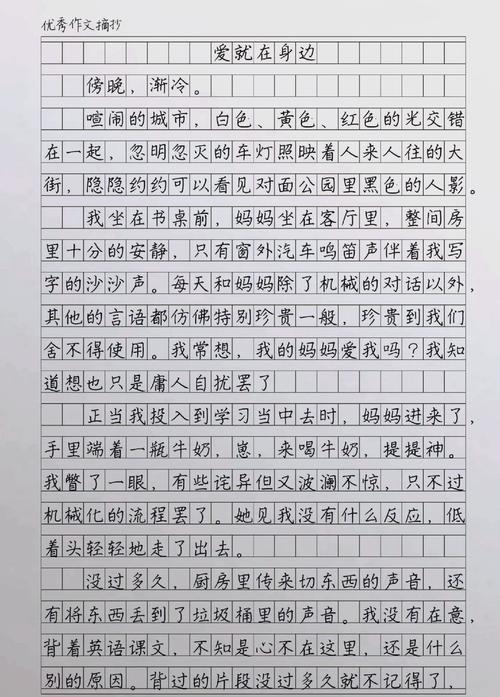 优秀作文摘抄
爱就在身边
傍晚，渐冷。
喧闹的城市，白色、黄色、红色的光交错
在一起，忽明忽灭的车灯照映着人来人往的大
街，隐隐约约可以看见对面公园里黑色的人影。
我坐在书桌前，妈妈坐在客厅里，整间房
里十分的安静，只有窗外汽车鸣笛声伴着我写
字的沙沙声。每天和妈妈除了机械的对话以外，
其他的言语都仿佛特别珍贵一般，珍贵到我们
舍不得使用。我常想，我的妈妈爱我吗？我知
道想也只是庸人自扰罢了
正当我投入到学习当中去时，妈妈进来了，
手里端着一瓶牛奶，崽，来喝牛奶，提提神。
我瞥了一眼，有些诧异但又波澜不惊，只不过
机械化的流程罢了。她见我没有什么反应，低
着头轻轻地走了出去。
没过多久，厨房里传来切东西的声音，还
有将东西丢到了垃圾桶里的声音。我没有在意，
背着英语课文，不知是心不在这里，还是什么
别的原因。背过的片段没过多久就不记得了，